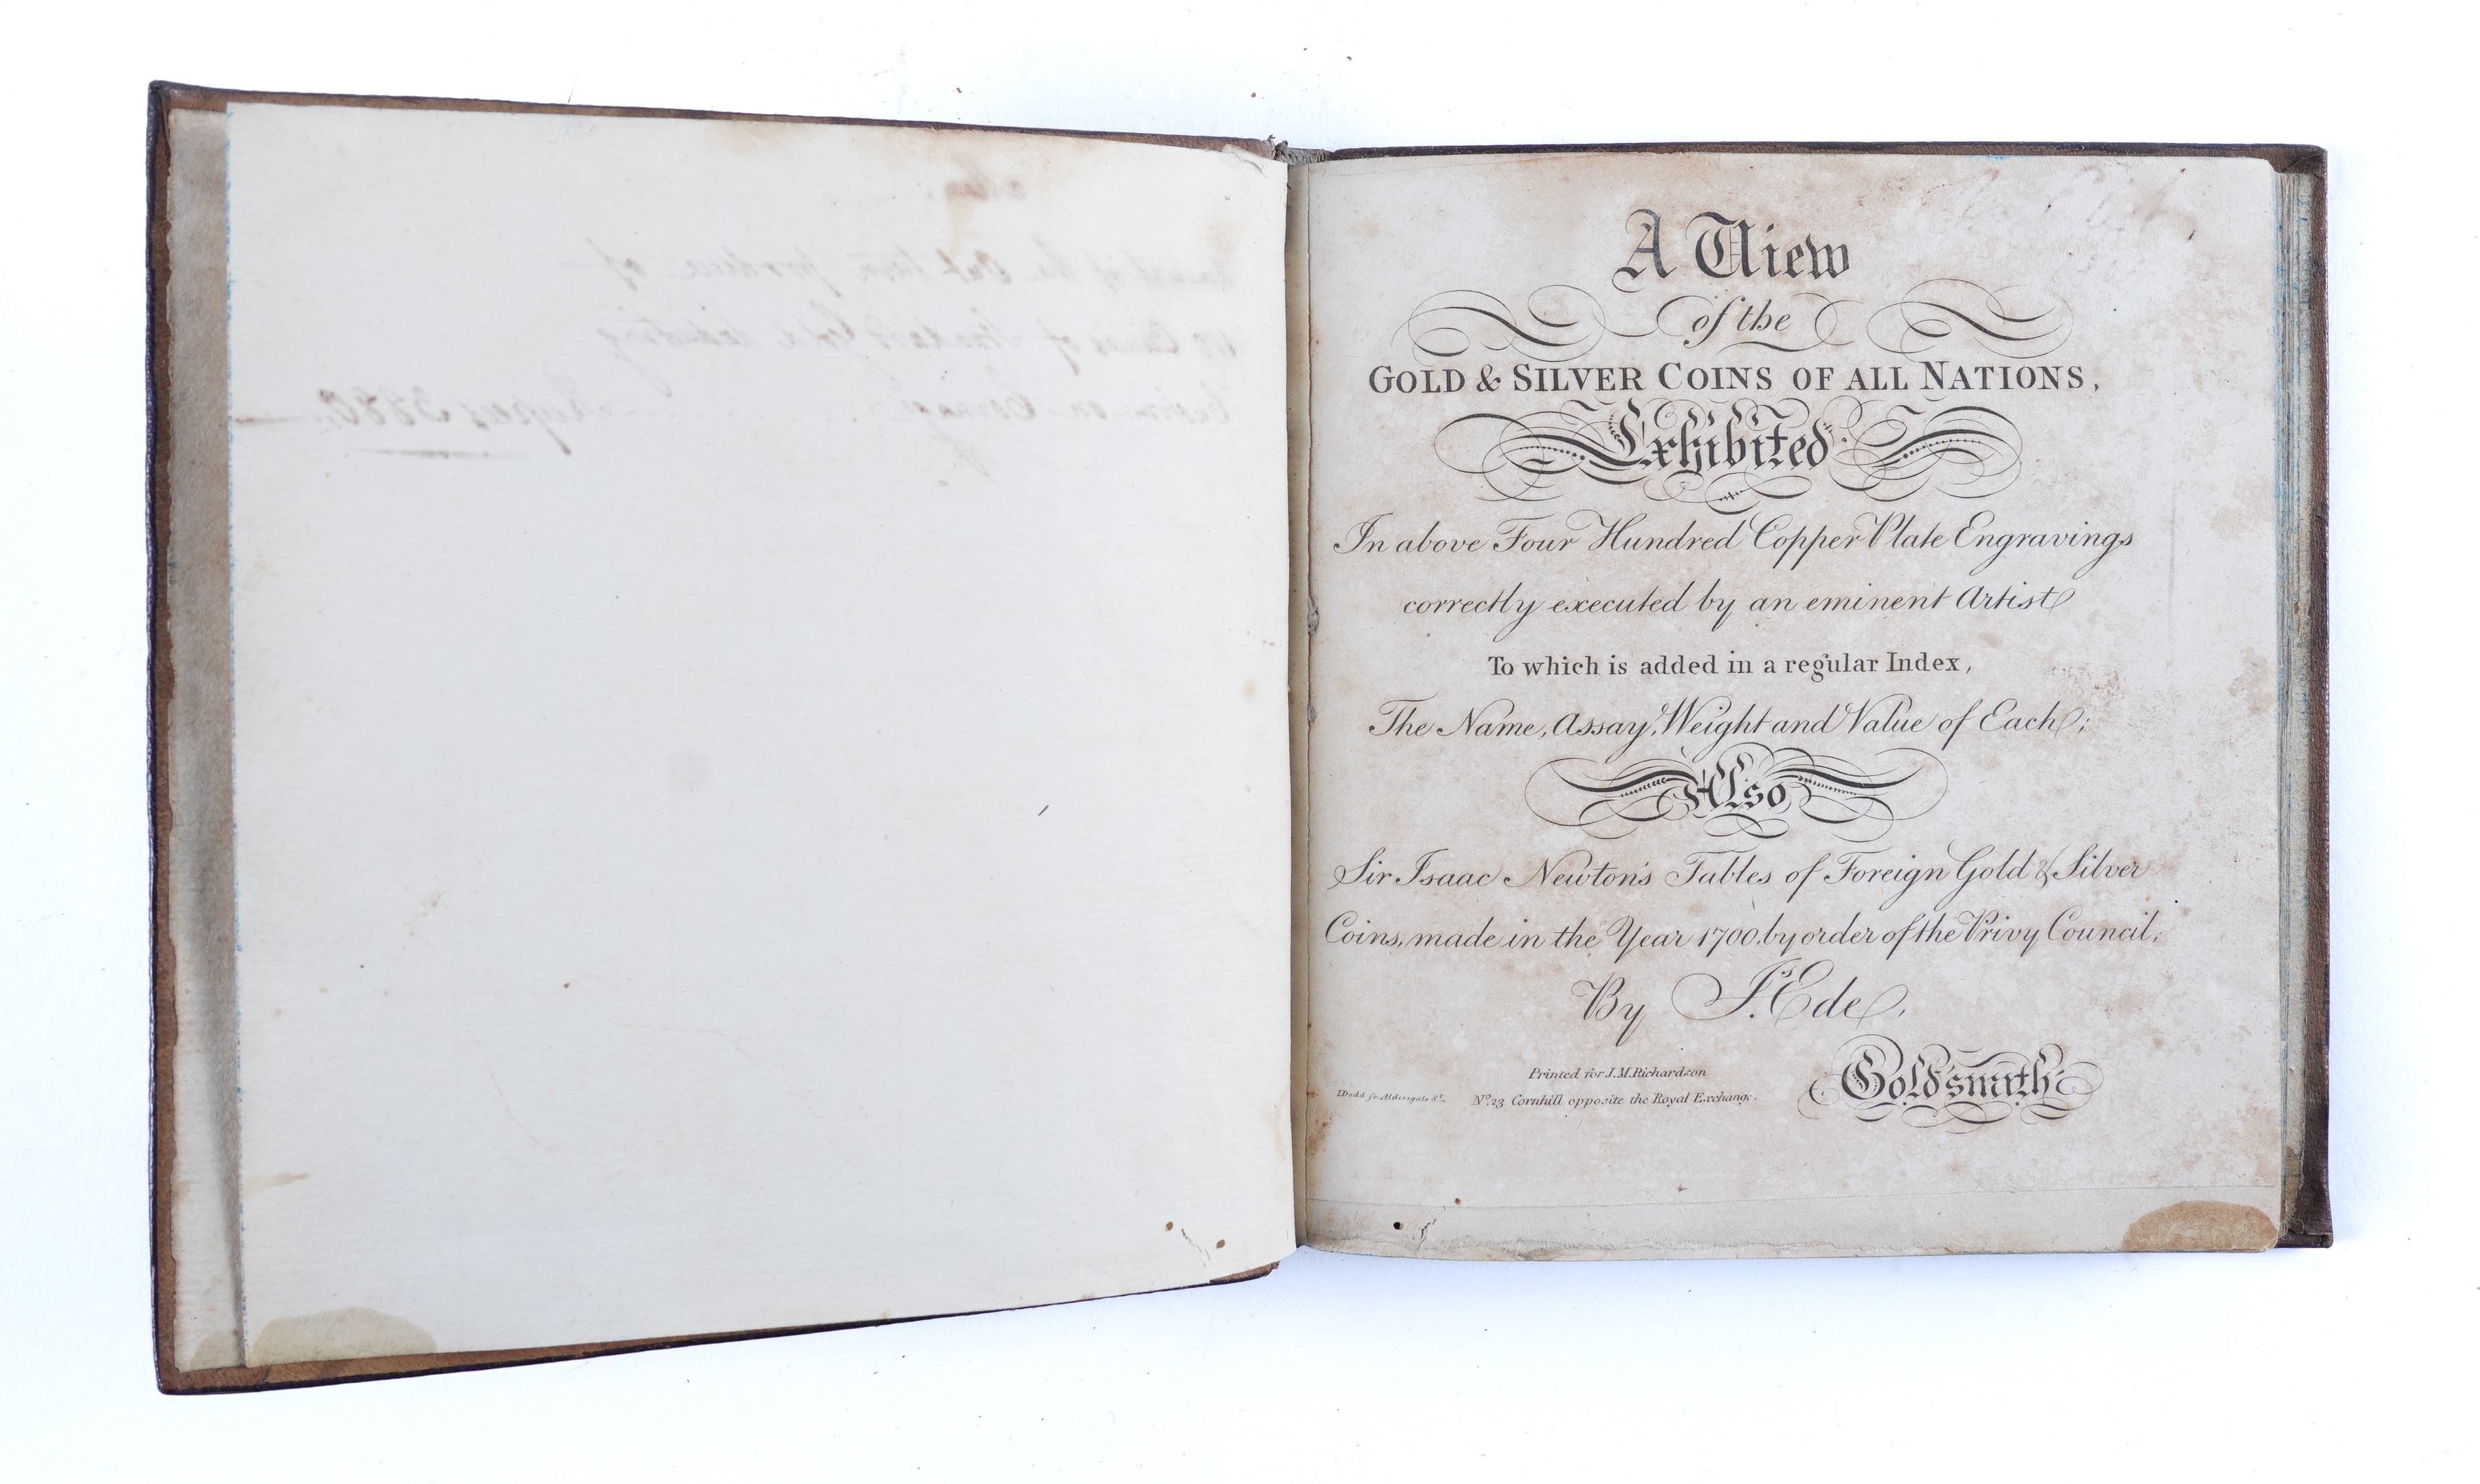 A View
of the
GOLD & SILVER COINS OF ALL NATIONS,
Exhibited
In above Four Hundred Copper Plate Engravings
correctly executed by an eminent Artist
To which is added in a regular Index,
The Name, Assay, Weight and Value of Each;
Also
Sir Isaac Newton's Tables of Foreign Gold & Silver
Coins, made in the Year 1700. by order of the Privy Council,
By Js. Ede,
Goldsmith
Printed for J.M.Richardson
No. 23 Cornhill opposite the Royal Exchange.
Dodd sc. Aldersgate St.